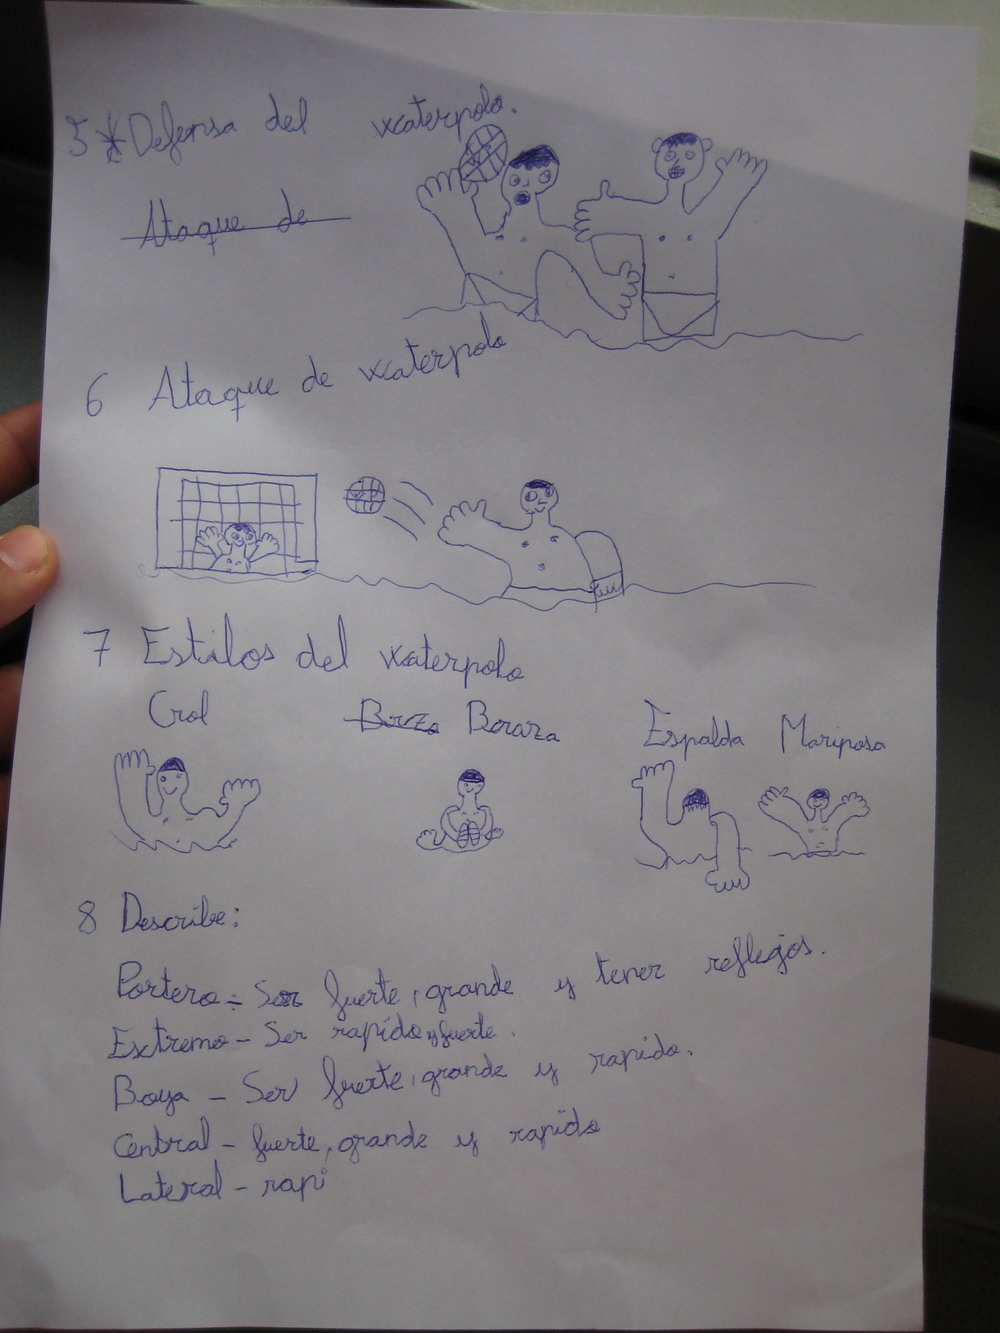 5 Defensa del waterpolo.
Ataque de
6 Ataque de waterpolo
7 Estilos del waterpolo
Crol Braza Boraza Espalda Mariposa
8 Describe:
Portero - Ser fuerte, grande y tener reflejos.
Extremo - Ser rapido y fuerte.
Boya - Ser fuerte, grande y rapido.
Central - fuerte, grande y rapido
Lateral - rapi